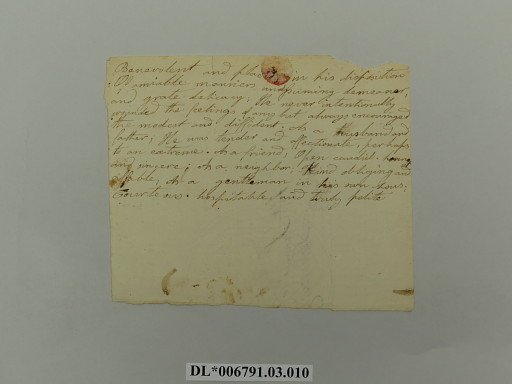 Benevolent and placid in his disposition
Of amiable manners and wining demeanor,
and grate delicacy; He never intentionally
wounded the feelings of any but always encouraged
the modest and diffident; As a Husband and
father; He was tender and affectionate, perhaps
to an extreme. As a friend; Open candid
and sincere; As a neighbor, Kind obliging and
affable; As a gentleman in his own house;
Courteous. hospitable and truly polite
DL*006791.03.010